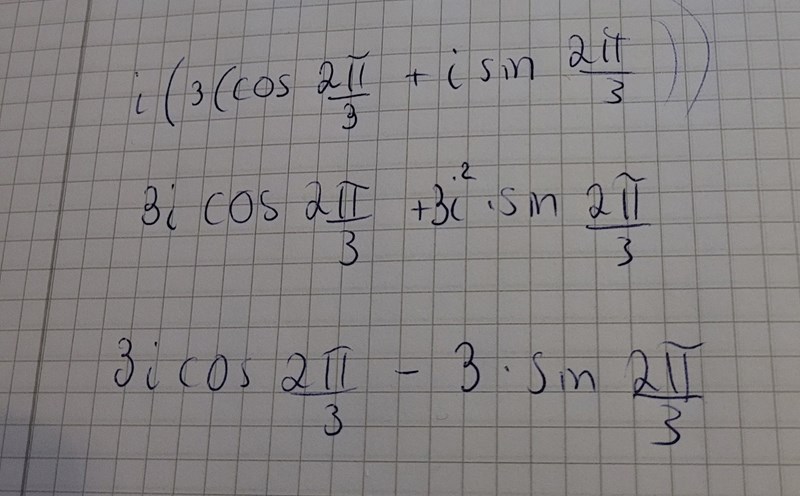 i(3(cos 2π/3 + i sin 2π/3))
3i cos 2π/3 +3i² · sin 2π/3
3i cos 2π/3 − 3 · sin 2π/3